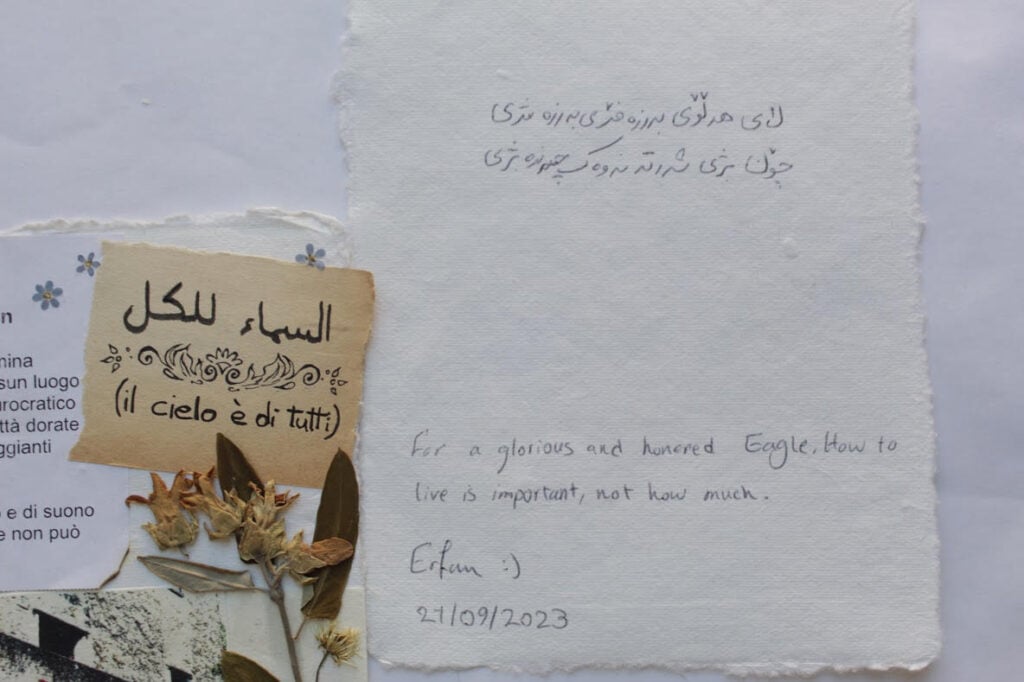 لای هەڵۆی بەرزە فڕی بەرزە مژی
چۆن بژی شەرتە نەوەک چەندە بژی
السماء للكل
(il cielo è di tutti)
n
mina
sun luogo
urocratico
ttà dorate
ggianti
o e di suono
e non può
For a glorious and honored Eagle, How to
live is important, not how much.
Erfan :)
21/09/2023